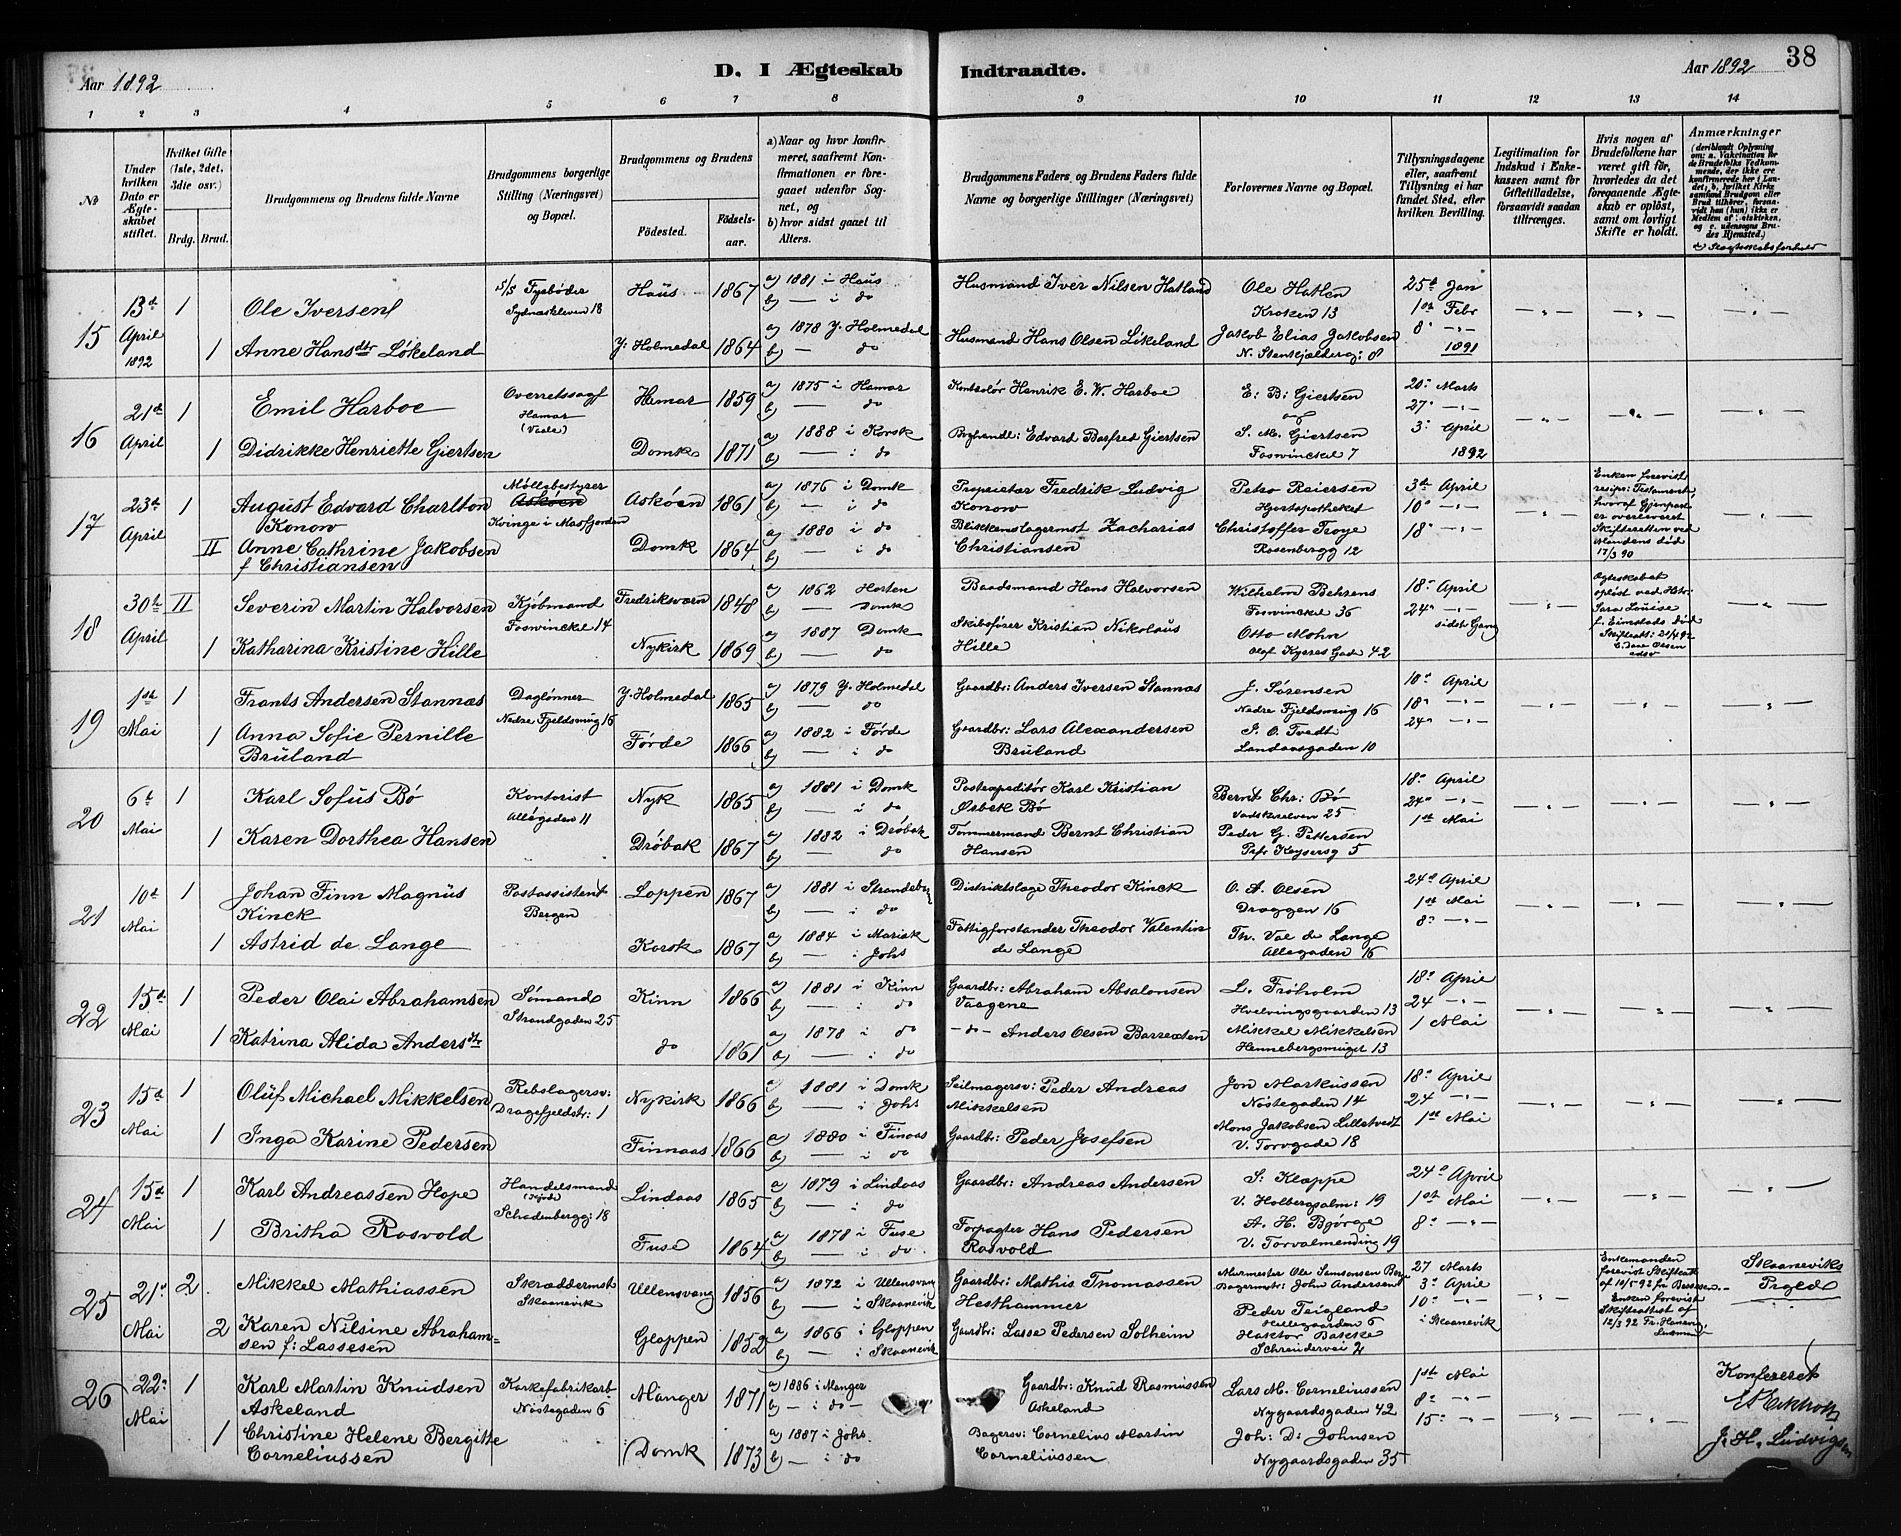 Aar 1892
D. I Ægteskab Indtraadte.
Aar 1892
38
1 2 3 4 5 6 7 8 9 10 11 12 13 14
No
Under hvilken Dato er Ægteskabet stiftet.
Hvilket Gifte (1ste, 2det, 3die osv.)
Brdg. Brud.
Brudgommens og Brudens fulde Navne
Brudgommens borgerlige Stilling (Næringsvei) og Bopæl.
Brudgommens og Brudens
Fødested. Fødselsaar.
a) Naar og hvor konfirmeret, saafremt Konfirmationen er foregaaet udenfor Sognet, og
b) hvor sidst gaaet til Alters.
Brudgommens Faders, og Brudens Faders fulde Navne og borgerlige Stillinger (Næringsvei)
Forlovernes Navne og Bopæl.
Tillysningsdagene eller, saafremt Tillysning ei har fundet Sted, efter hvilken Bevilling.
Legitimation for Indskud i Enkekassen samt for Giftetilladelse, forsaavidt saadan tiltrænges.
Hvis nogen af Brudefolkene har været gift før, hvorledes da det foregaaende Ægteskab er opløst, samt om lovligt Skifte er holdt.
Anmærkninger
(deriblandt Oplysning om: a. Vakcination for de Brudefolks Vedkommende, der ikke ere konfirmerede her i Landet; b. hvilket Kirkesamfund Brudgom eller Brud tilhører, forsaavidt han (hun) ikke er Medlem af Statskirken, og c. udensogns Brudes Hjemsted.)
d. Slægtskabsforhold
15
13d April 1892
1 Ole Iversen
S/S Fyrbøder
Sydnæskleven 18
Haus 1867
a) 1881 i Haus
b) — i do
Husmand Iver Nilsen Hatland
Ole Hatlen
Kroken 13
25d Jan
1st Febr
8" -"-
1891
1 Anne Hansdtr Løkeland
Y: Holmedal 1864
a) 1878 Y. Holmedal
b) — do
Husmand Hans Olsen Løkeland
Jakob Elias Jakobsen
N. Stenkjælderg: 8
16
21d April
1 Emil Harboe
Overretssagf
Hamar
(Vaale)
Hamar 1859
a) 1875 i Hamar
b) — do
Kontrolør Henrik E. W. Harboe
E: B: Giertsen
og
S. M. Giertsen
Fosvinckel 7
20" Marts
27" -"-
3" April
1892
1 Didrikke Henriette Giertsen
Domk 1871
a) 1888 i Korsk
b) — i do
Boghandl: Edvard Barfred Giertsen
17
23d April
1 August Edvard Charlton Konow
Møllebestyrer
Askøen
Kvinge i Masfjorden
Askøen 1861
a) 1876 i Domk
b) — i do
Proprietær Fredrik Ludvig Konow
Petro Reiersen
Hjorteapotheket
3d April
10" -"-
18"
II Anne Cathrine Jakobsen
f Christiansen
Domk 1864
a) 1880 i do
b) — i do
Blikkenslagermst Zacharias Christiansen
Christoffer Troye
Rosenbergg 12
Enken forevist
respr: Testament,
hvoraf Gjenpart
er overleveret
Skifteretten ved
Mandens død
17/3 90
18
30te April
II Severin Martin Halvorsen
Kjøbmand
Fosvinckel 14
Fredriksværn 1848
a) 1862 Horten
b) — Domk
Baadsmand Hans Halvorsen
Wilhelm Behrens
Fosvinckel 36
18" April
24" -"-
sidst Gang
1 Katharina Kristine Hille
Nykirk 1869
a) 1887 Domk
b) — do
Skibsfører Kristian Nikolaus Hille
Otto Mohn
Olaf Kyrres Gade 42
Ægteskabet
opløst ved Hstr:
Sara Louise
f. Eimstads død
19
1st Mai
1 Frants Andersen Stannæs
Daglønner
Nedre Fjeldsmug 16
Y. Holmedal 1865
a) 1879 Y. Holmedal
b) — do
Gaardbr: Anders Iversen Stannas
J. Sørensen
Nedre Fjeldsmug 16
10" April
18" -"-
24"
1 Anna Sofie Pernille Bruland
Førde 1866
a) 1882 i Førde
b) — i do
Gaardbr: Lars Alexandersen Bruland
S. O. Tvedt
Landaasgaden 10
20
6d Mai
1 Karl Sofus Bø
Kontorist
Allegaden 11
Nyk 1865
a) 1881 i Domk
b) — i do
Postexpeditør Karl Kristian Ørbek Bø
Bernt Chr: Bø
25
18" April
24" -"-
1st Mai
1 Karen Dorthea Hansen
Drøbak 1867
a) 1882 i Drøbak
b) — do
Tømmermand Bernt Christian Hansen
Peder G. Pettersen
Prfr Keysersg 5
21
10d Mai
1 Johan Finn Magnus Kinck
Postassistent
Bergen
Loppen 1867
a) 1881 i Strandeb
b) — i do
Distriktslæge Theodor Kinck
O. A. Olsen
Dræggen 16
24d April
1st Mai
8" -"-
1 Astrid de Lange
Korsk 1867
a) 1884 i Mariek
b) — i Johs
Fattigforstander Theodor Valentin de Lange
Th. Val de Lange
Allegaden 16
22
15d Mai
1 Peder Olai Abrahamsen
Sømand
Strandgaden 25
Kinn 1866
a) 1881 i Kinn
b) — i do
Gaardbr: Abraham Absalonsen Vaagene
L. Frøholm
Hvelvingsgaarden 13
18" April
24 -"-
1 Mai
1 Katrina Alida Andersdtr
do 1861
a) 1878 i do
b) — i do
-do- Anders Olsen Barrexten
Mikkel Mikkelsen
Hennebergsmuget 13
23
15d Mai
1 Oluf Michael Mikkelsen
Rebslagersv:
Dragefjeldstr: 1
Nykirk 1866
a) 1881 i Domk
b) — i Johs
Seilmagersv: Peder Andreas Mikkelsen
Jon Markussen
Nøstegaden 14
18" April
24 -"-
1st Mai
1 Inga Karine Pedersen
Finnaas 1866
a) 1880 i Finaas
b) — i do
Gaardbr: Peder Josefsen
Mons Jakobsen Lilletvedt
V. Torvgade 18
24
15d Mai
1 Karl Andreassen Hope
Handelsmand
Skudenbergg: 18
Lindaas 1865
a) 1879 i Lindaas
b) — i do
Gaardbr: Andreas Andersen
S: Kloppe
V. Holbergsalm: 19
24d April
1st Mai
8" -"-
1 Britha Rosvold
Fuse 1864
a) 1878 i Fuse
b) — i do
Forpagter Hans Pedersen Rosvold
A. H. Bjørge
V. Torvalmending 19
25
21" Mai
2 Mikkel Mathiassen
Skræddermst
Skaanevik
Ullensvang 1856
a) 1872 i Ullensvang
b) — i Skaanevik
Gaardbr: Mathis Thomassen Hesthammer
Murmester Ole Simonsen
Bagermst: John Andersen
Peder Teigland
Hellegaarden 6
27 Marts
3" April
10" -"-
i Skaanevik
2 Karen Nilsine Abrahamsen f: Lassesen
Gloppen 1852
a) 1866 i Gloppen
b) — i Skaanevik
Gaardbr: Lasse Pedersen Solheim
Haktor Bakke
Schrøndervei 2
Enkemanden
forevist Skifteatt
af 10/5 92
Enken forevist
Skifteattest af
12/3 92
Skaaneviks
Prgjeld
26
22" Mai
1 Karl Martin Knudsen Askeland
Korkefabrikarb
Nøstegaden 6
Manger 1871
a) 1886 i Manger
b) — i do —
Gaardbr: Knud Rasmussen Askeland
Lars M. Corneliussen
Nygaardsgaden 42
1st Mai
8" -"-
15" -"-
1 Christine Helene Bergitte Corneliussen
Domk 1873
a) 1887 i Johs
b) — i do
Bagersv: Cornelius Martin Corneliussen
Joh: D: Johnsen
Nygaardsgaden 35
Konfereret
J. H. Ludvigsen